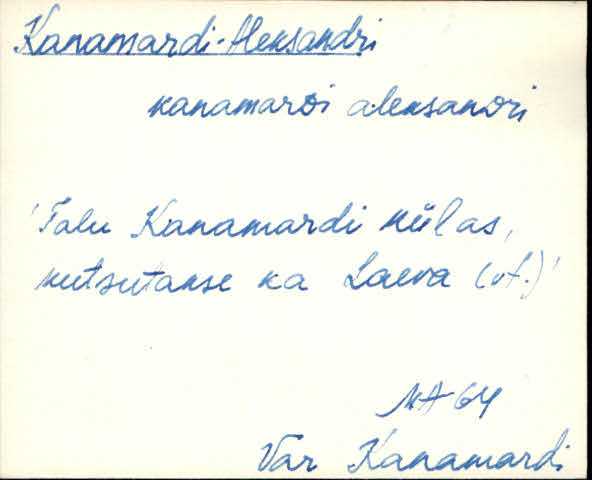 Kanamardi-Aleksandri
kanamarᴅi aleksanᴅri
'Talu Kanamardi külas,
kutsutakse ka Laeva (vt.)'
MA 64
Var Kanamardi